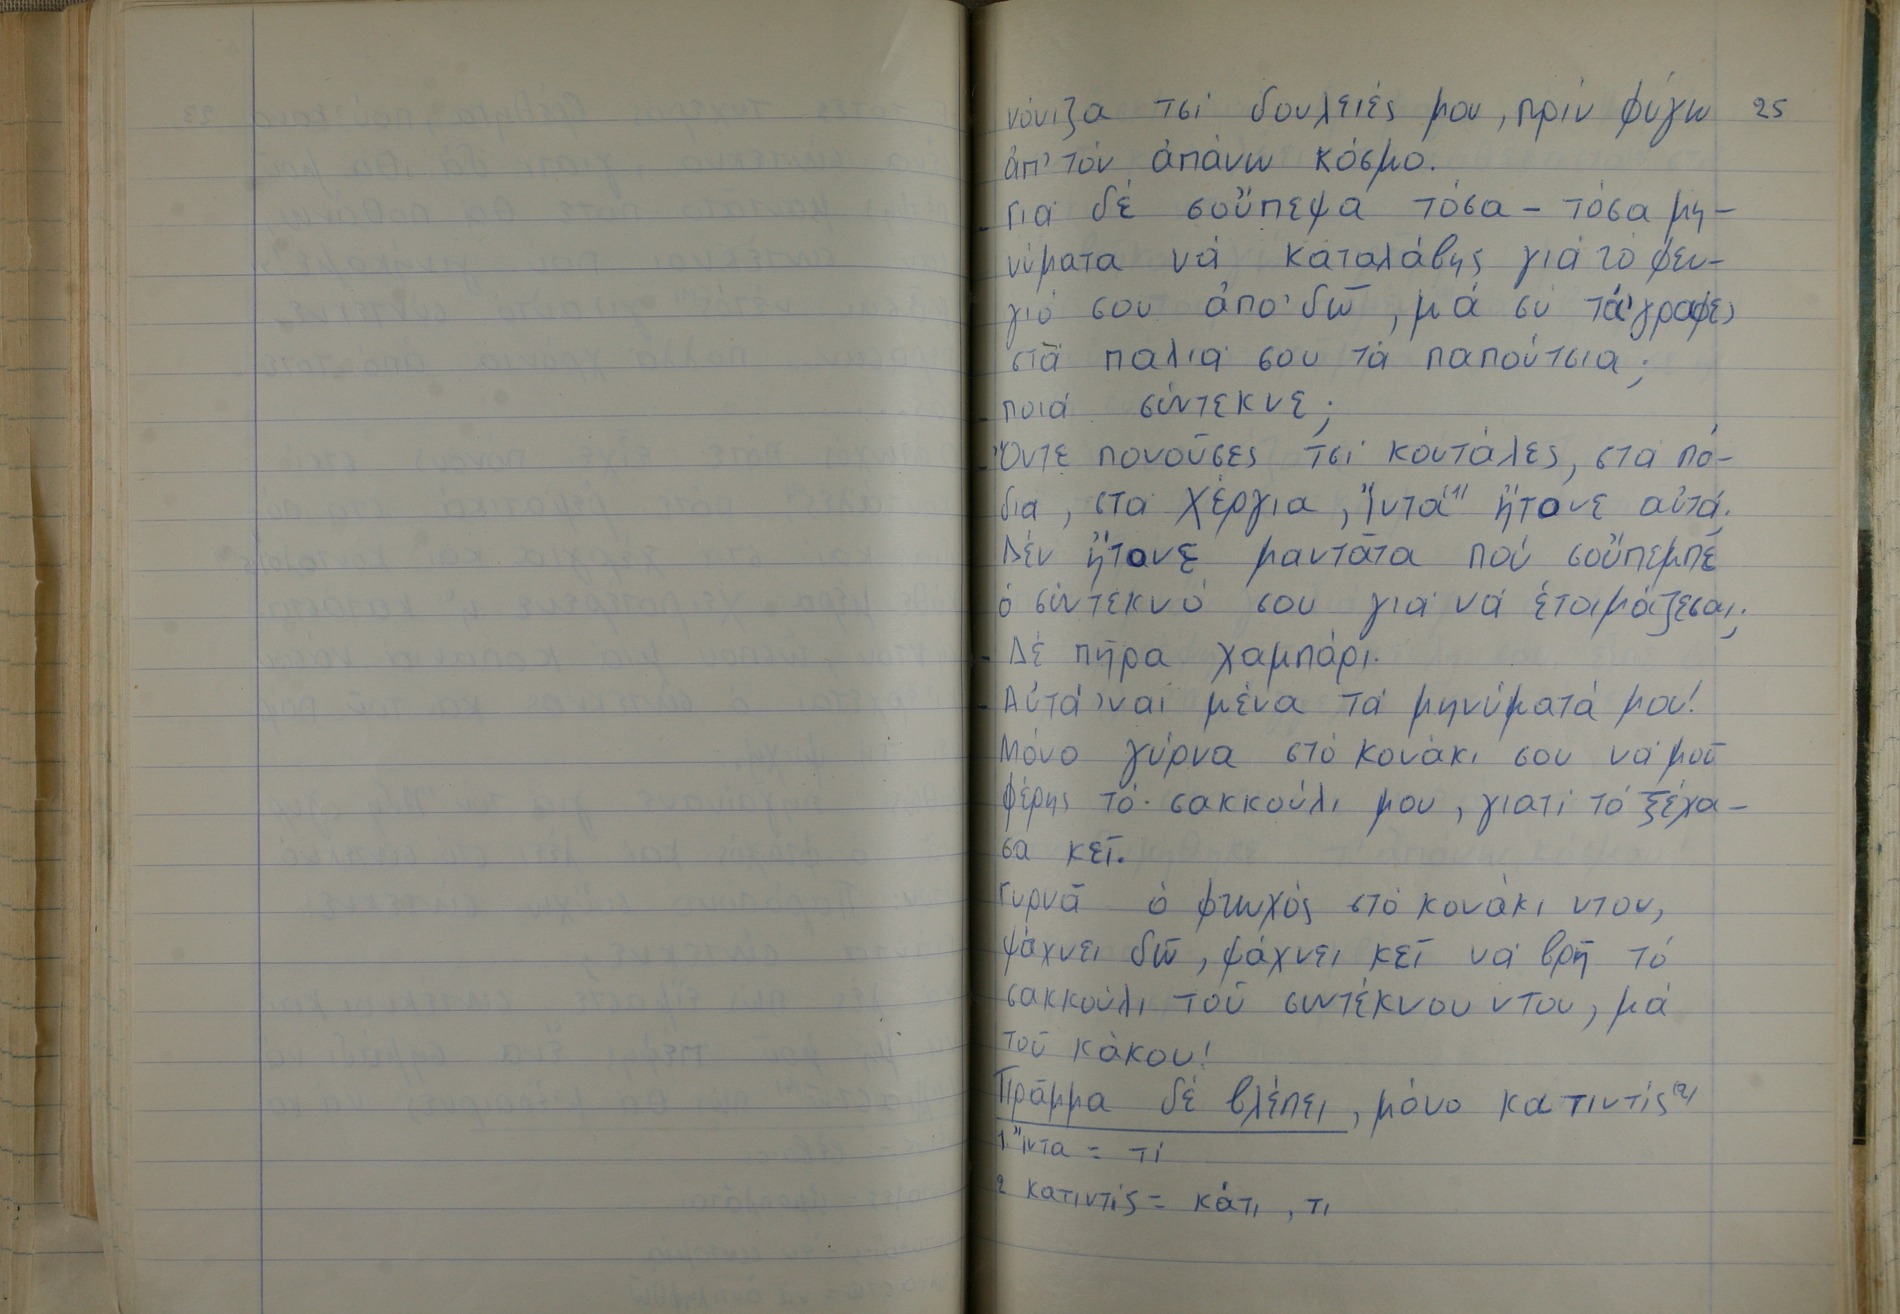 νόνιζα τσί δουλειές μου, πρίν φύγω 25
ἀπ' τόν ἀπάνω κόσμο.
- Γιά δέ σοὔπεψα τόσα - τόσα μη-
νύματα νά καταλάβης γιά τό φευ-
γιό σου ἀπο' δῶ, μά σύ τά'γραφες
στά παλιά σου τά παπούτσια;
- ποιά σύντεκνε;
- Ὄντε πονοῦσες τσί κουτάλες, στά πό-
δια, στά χέργια, ἴντα(1) ἤτονε αὐτά;
Δέν ἤτονε μαντᾶτα πού σοὔπεμπε
ὁ σύντεκνό σου γιά νά ἑτοιμάζεσαι;
- Δέ πῆρα χαμπάρι.
- Αὐτά 'ναι μένα τά μηνύματά μου!
Μόνο γύρνα στό κονάκι σου νά μοῦ
φέρης τό σακκούλι μου, γιατί τό ξέχα-
σα κεῖ.
Γυρνᾶ ὁ φτωχός στό κονάκι ντου,
ψάχνει δῶ, ψάχνει κεῖ νά βρῆ τό
σακκούλι τοῦ συντέκνου ντου, μά
τοῦ κάκου!
Πρᾶμμα δέ βλέπει, μόνο κατιντίς(2)
1. Ἴντα = τί
2 κατιντίς = κάτι, τι